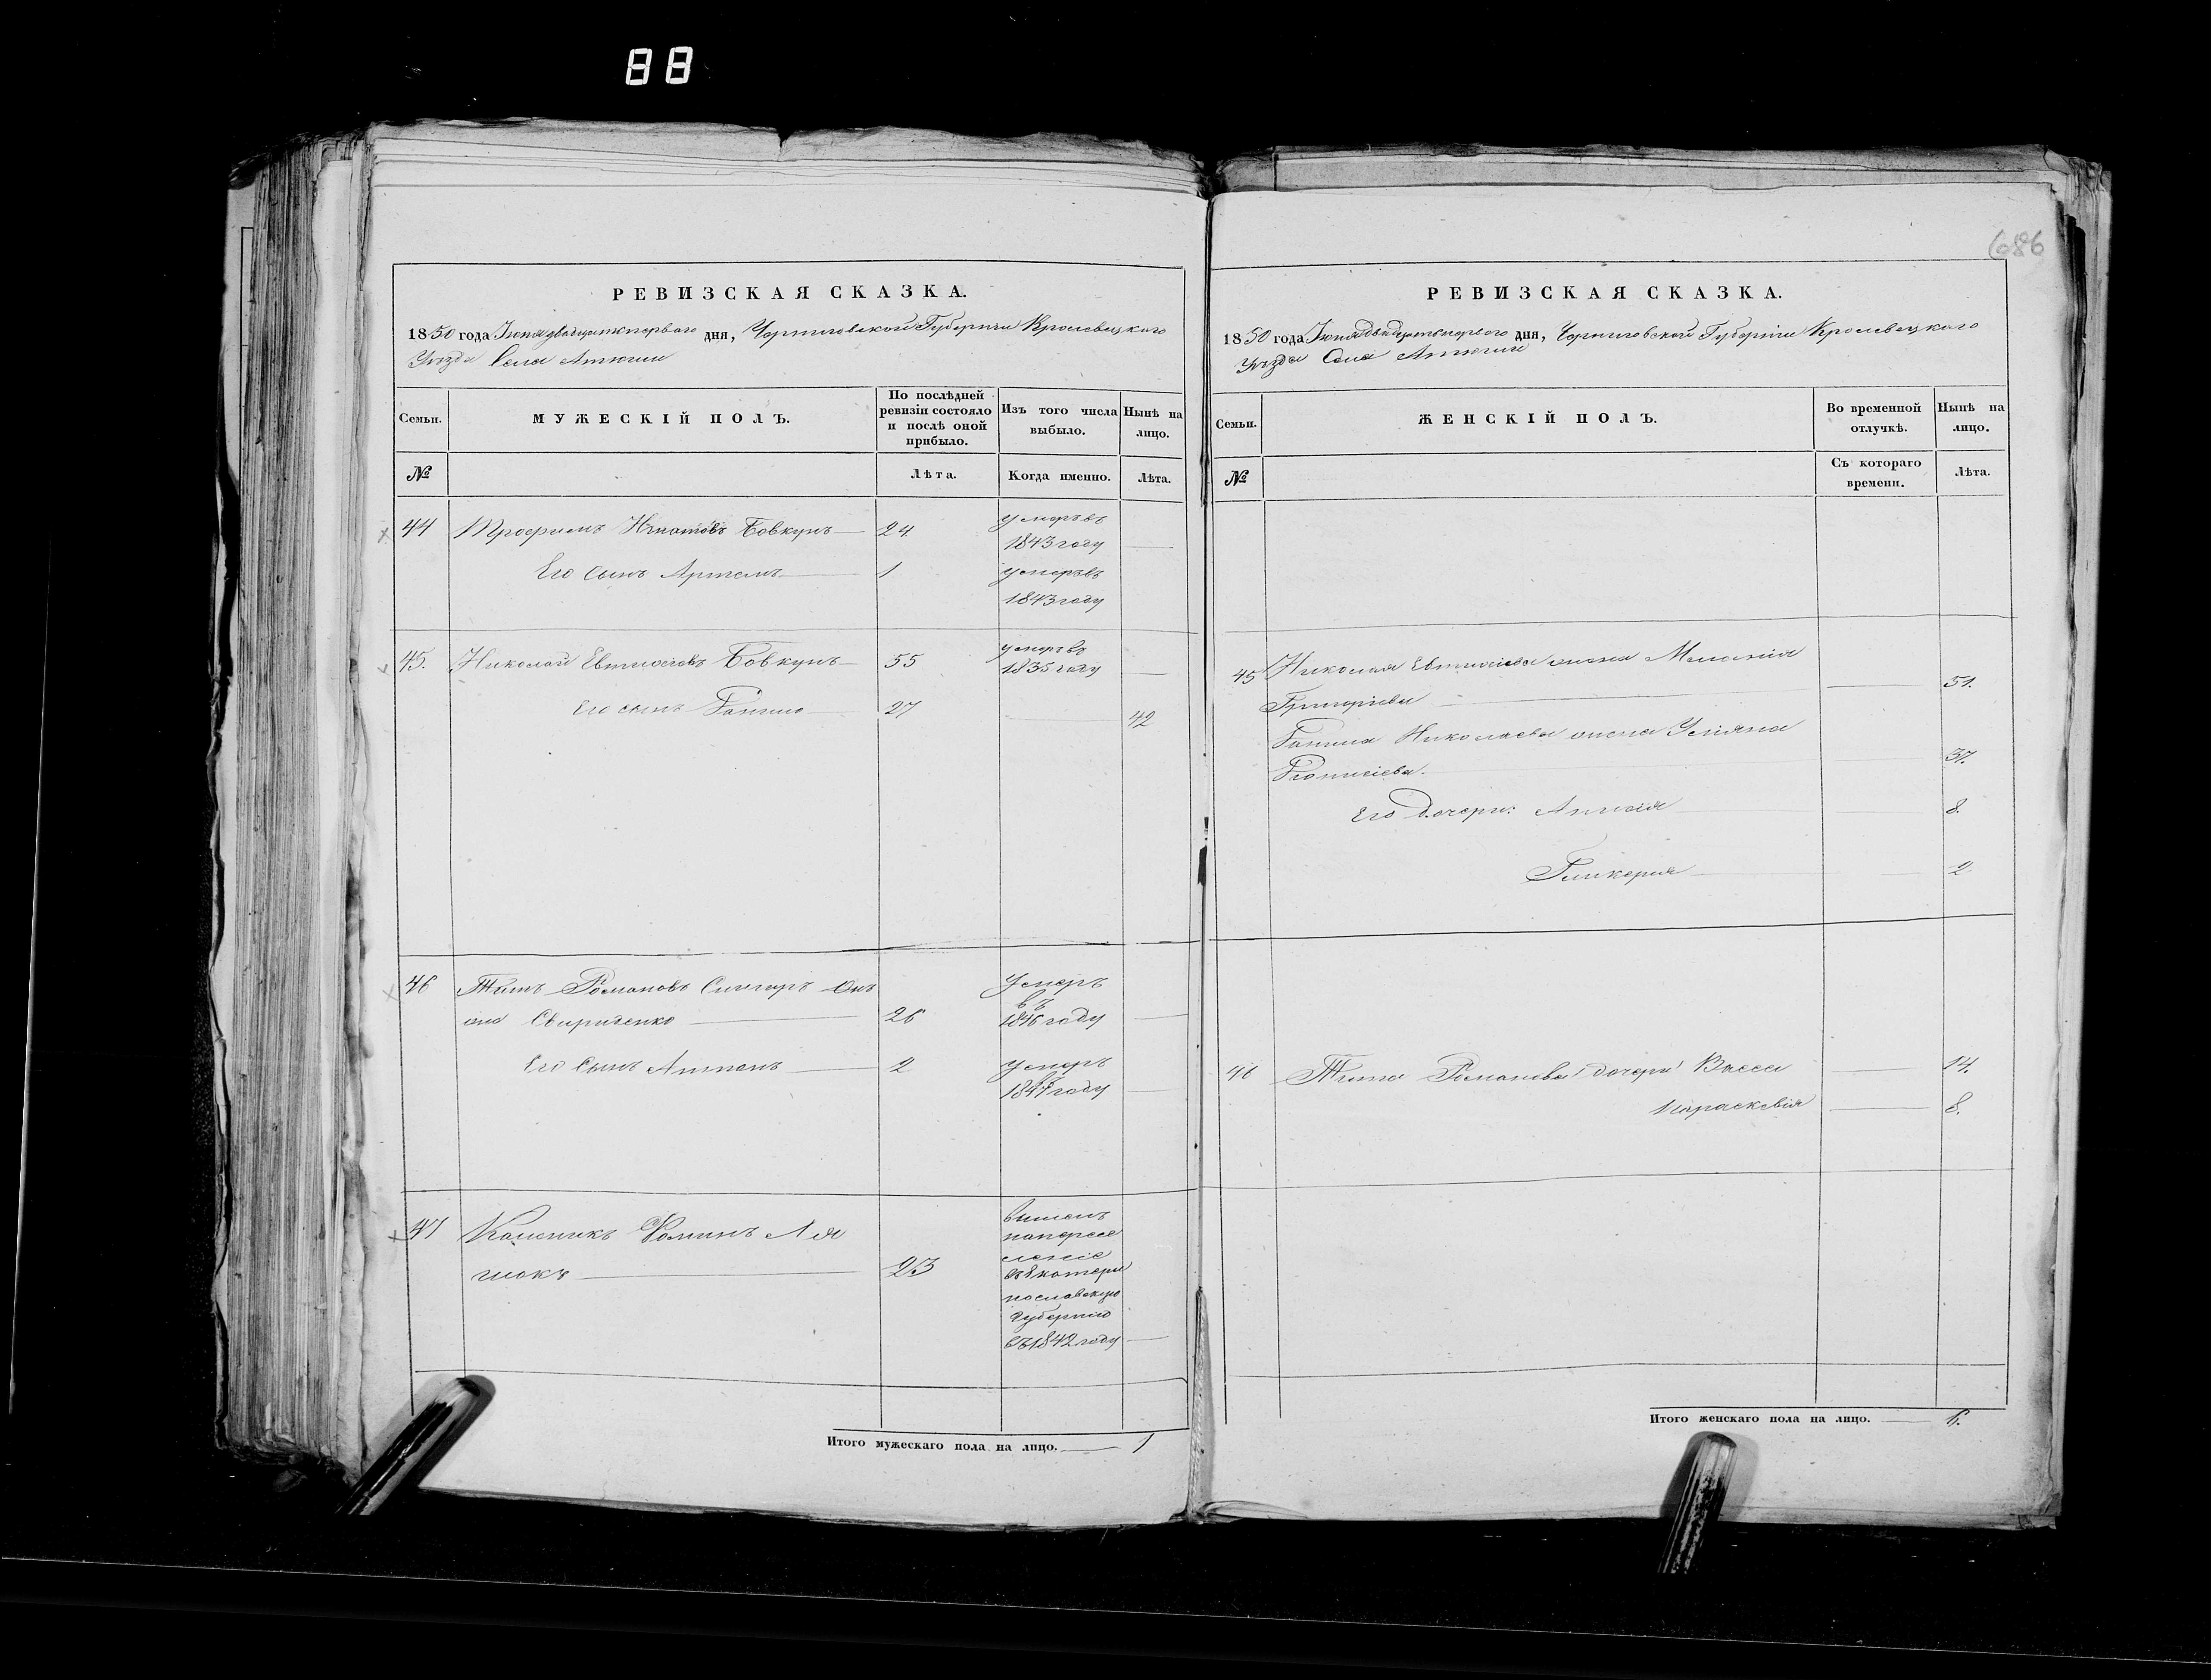 88
686
РЕВИЗСКАЯ СКАЗКА.
1850 года Іюня двадцатьперваго дня, Черниговской Губерніи Кролевецкого
Уѣзда Села Атюши
Семьи.
МУЖЕСКІЙ ПОЛЪ.
По послѣдней
ревизіи состояло
и послѣ оной
прибыло.
Изъ того числа
выбыло.
Нынѣ на
лицо.
№
Лѣта.
Когда именно.
Лѣта.
44 Трофимъ Игнатовъ Бовкунъ 24 умеръ въ
1843 году
Его сынъ Артемъ 1 умеръ въ
1843 году
45. Николай Евтихіевъ Бовкунъ 55 умеръ въ
1835 году
Его сынъ 27 42
46 Титъ Романовъ онъ
же Свириденко 26 умеръ
въ
1846 году
Его сынъ Антонъ 2 умеръ
въ
1847 году
47 Каленикъ Фоминъ Ля
шокъ 23
вышелъ
на пересе
леніе
въ Екатери
нославскую
губернію
въ 1842 году
Итого мужескаго пола на лицо. 1
РЕВИЗСКАЯ СКАЗКА.
1850 года Іюня двадцатьперваго дня, Черниговской Губерніи Кролевецкаго
Уѣзда Села Атюши
Семьи.
ЖЕНСКІЙ ПОЛЪ.
Во временной
отлучкѣ.
Нынѣ на
лицо.
№
Съ котораго
времени.
Лѣта.
45 Николая Евтихіева жена Меланія
Григорьева 51.
Николаева жена Уліяна
37.
Его дочери: 8.
Гликерия 2
46 Тита Романова дочери Васса 14.
Параскевія 8.
Итого женскаго пола на лицо. 6.